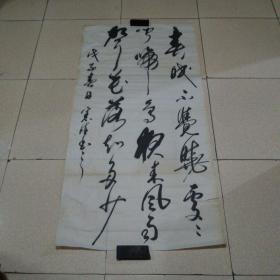 春眠不覺曉處〻
聞啼鳥夜来風雨
聲花落知多少
戊子春日